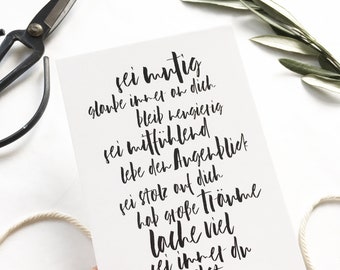 sei mutig
glaube immer an dich
bleib neugierig
sei mitfühlend
lebe den Augenblick
sei stolz auf dich
hab große träume
lache viel
sei immer du